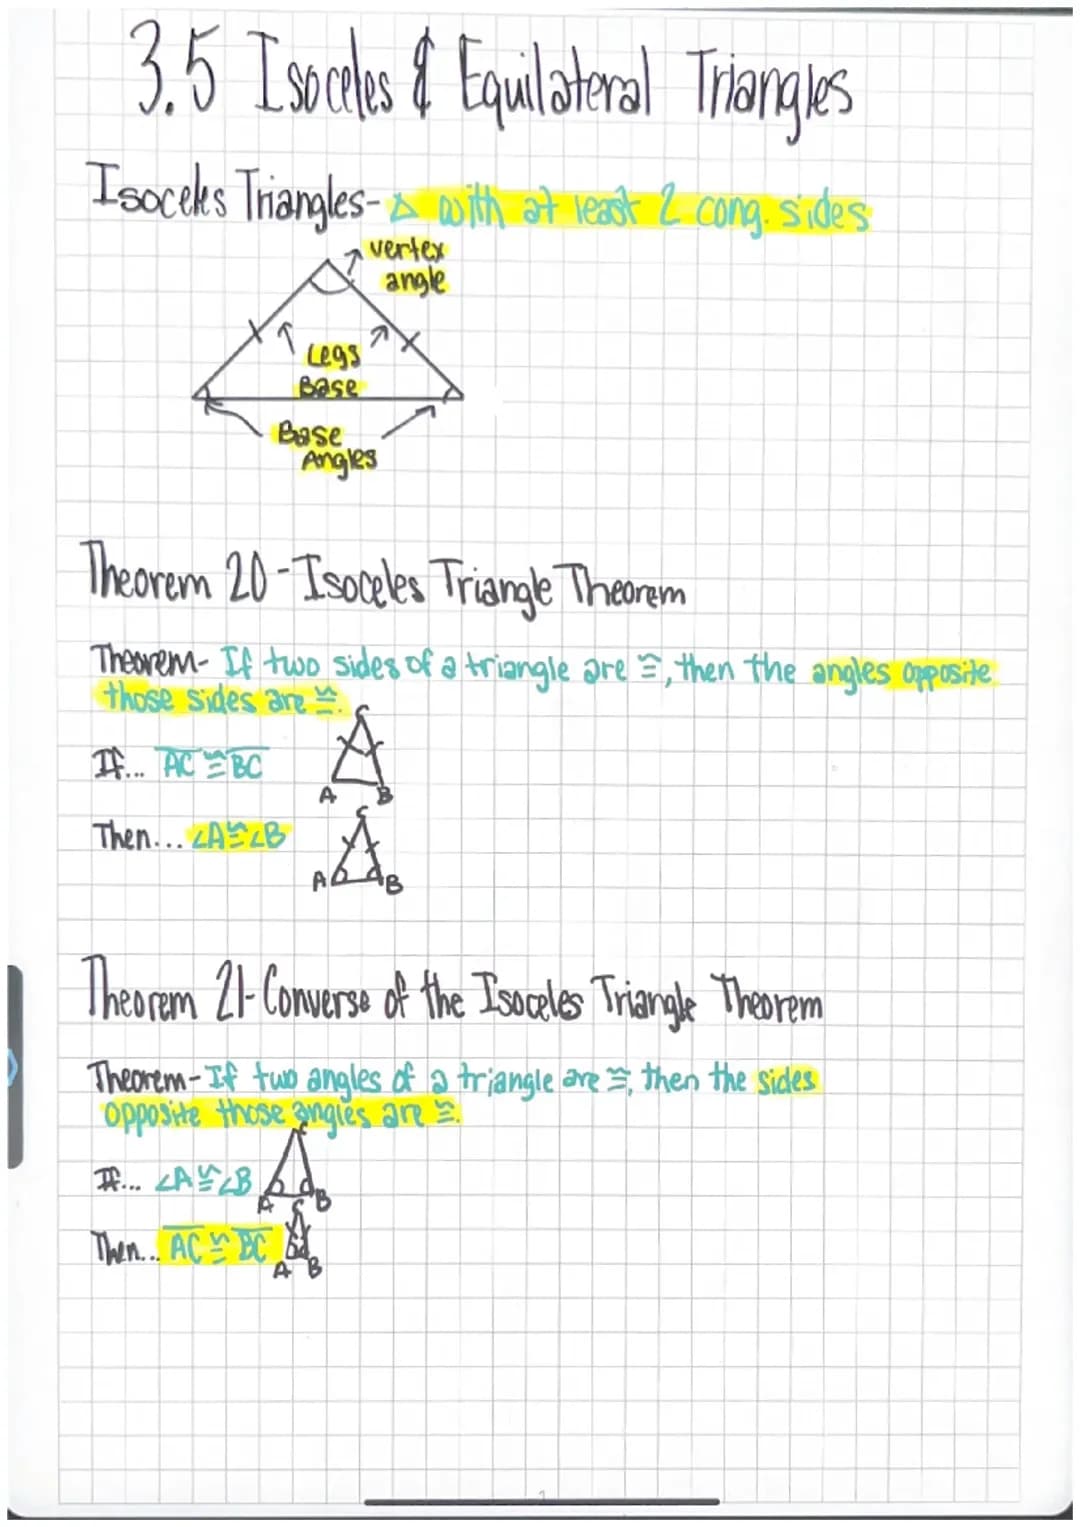 3.5 Isoceles & Equilateral Triangles
Isoceles Triangles- △ with at least 2 cong. sides
vertex
angle
Legs
Base
Base
Angles
Theorem 20 - Isoceles Triangle Theorem
Theorem- If two sides of a triangle are ≅, then the angles opposite
those sides are ≅.
C
If... A̅C̅ ≅ B̅C̅
A B
C
Then... ∠A≅∠B
A B
Theorem 21- Converse of the Isoceles Triangle Theorem
Theorem- If two angles of a triangle are ≅, then the sides
opposite those angles are ≅.
C
If... ∠A≅∠B
A B
C
Then... A̅C̅ ≅ B̅C̅
A B